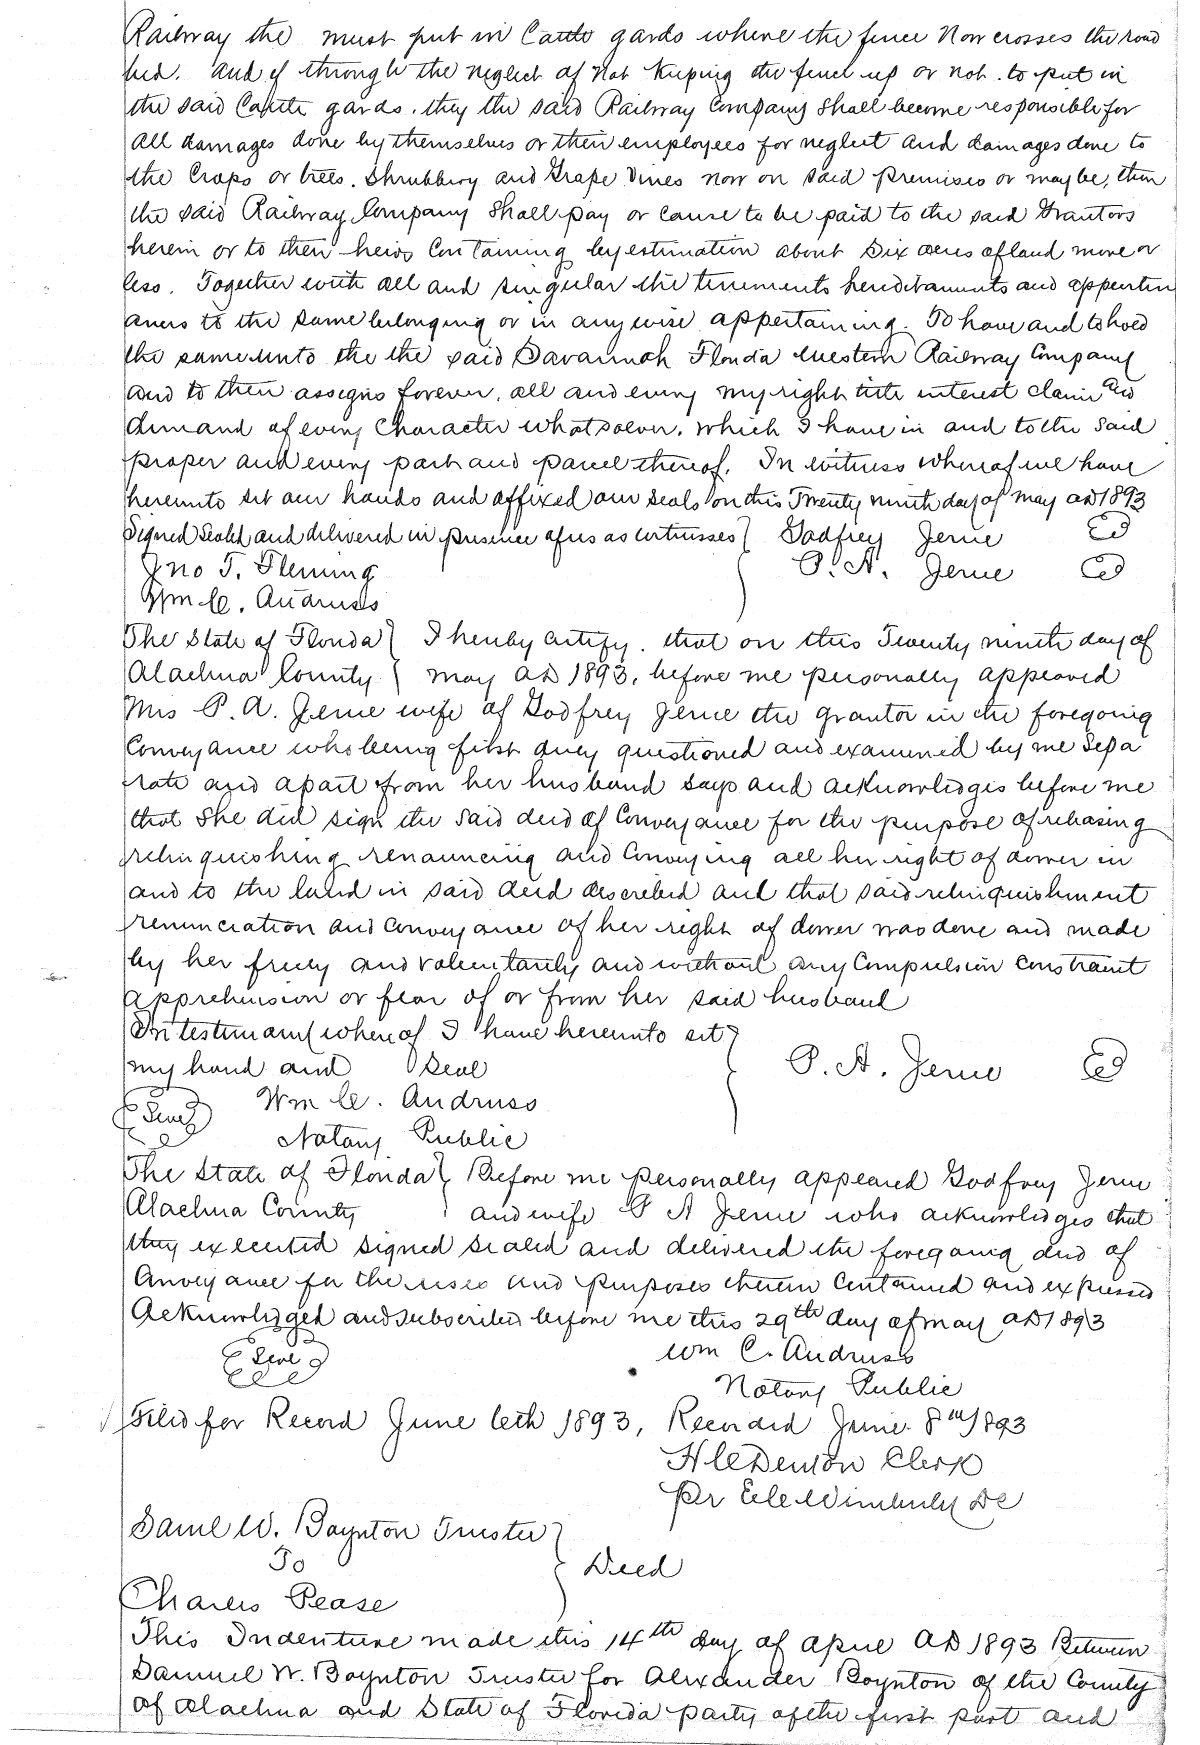 Railway the must put in Cattle gards where the fence Now crosses the road
bed. and if through the neglect of Not Keeping the fence up or not to put in
the said Cattle gards. they the said Railway Company Shall become responsible for
all damages done by themselves or their employees for neglect and damages done to
the Crops or trees. Shrubbery and Grape Vines now on said premises or may be, then
the said Railway Company Shall pay or cause to be paid to the said Grantors
herein or to their heirs Containing by estimation about Six acres of land more or
less. Together with all and singular the tenements hereditaments and appurten
ances to the same belonging or in any wise appertaining. To have and to hold
the same unto the the said Savannah Florida Western Railway Company
and to their assigns forever, all and every my right title interest claim and
demand of every Character whatsoever. which I have in and to the said
proper and every part and parcel thereof. In witness whereof we have
hereunto set our hands and affixed our seals on this Twenty ninth day of May AD 1893
Signed Sealed and delivered in presence of us as witnesses } Godfrey Jerue
Jno T. Fleming P. A. Jerue
Wm C. Andruss
The State of Florida } I hereby certify. that on this Twenty ninth day of
Alachua County } May AD 1893, before me personally appeared
Mrs P. A. Jerue wife of Godfrey Jerue the grantor in the foregoing
Conveyance who being first duly questioned and examined by me Sepa
rate and apart from her husband says and acknowledges before me
that She did sign the said deed of Conveyance for the purpose of releasing
relinquishing renouncing and Conveying all her right of dower in
and to the land in said deed described and that said relinquishment
renunciation and Conveyance of her right of dower was done and made
by her freely and voluntarily and without any Compulsion Constraint
apprehension or fear of or from her said husband
In testimony whereof I have hereunto set }
my hand and Seal P. A. Jerue
Seal Wm C. Andruss
Notary Public
The State of Florida } Before me personally appeared Godfrey Jerue
Alachua County } and wife P A Jerue who acknowledges that
they executed signed sealed and delivered the foregoing deed of
Conveyance for the uses and purposes therein Contained and expressed
Acknowledged and subscribed before me this 29th day of May AD 1893
Seal Wm C. Andruss
Notary Public
Filed for Record June 6th 1893, Recorded June 8th 1893
H C Denton Clerk
Pr E C Wimberly DC
Saml W. Boynton Trustee }
To } Deed
Charles Pease
This Indenture made this 14th day of April AD 1893 Between
Samuel W. Boynton Trustee for Alexander Boynton of the County
of Alachua and State of Florida party of the first part and